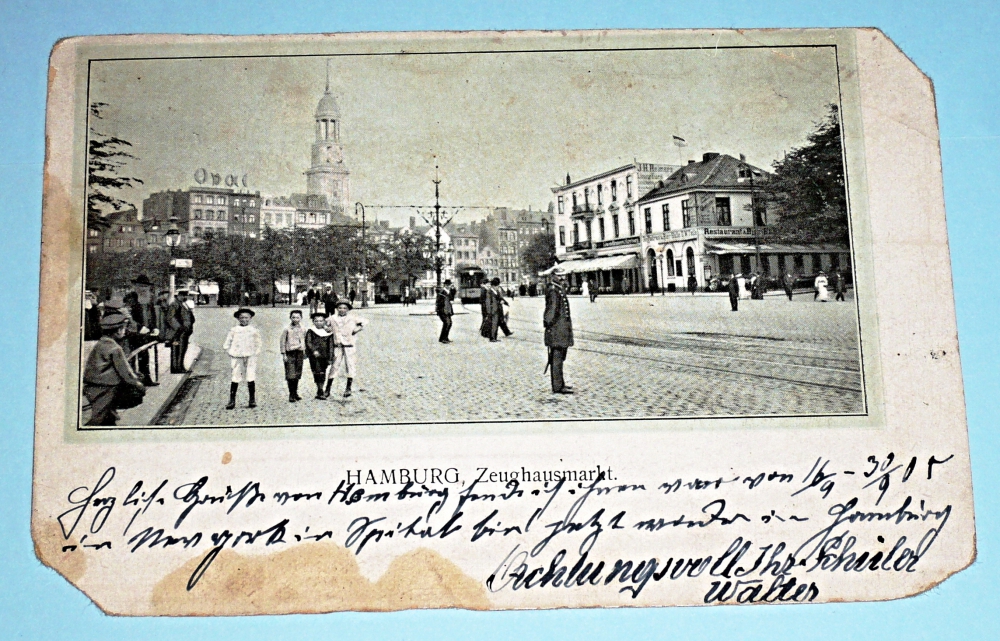 Oval
J.H. Reimers
Restaurant & B
HAMBURG, Zeughausmarkt.
Herzliche Grüße von Hamburg sende ich ihnen war von 16/9 – 30/9 05
in New york in Spital bin jetzt wieder in Hamburg
Achtungsvoll Ihr Schüler
Walter